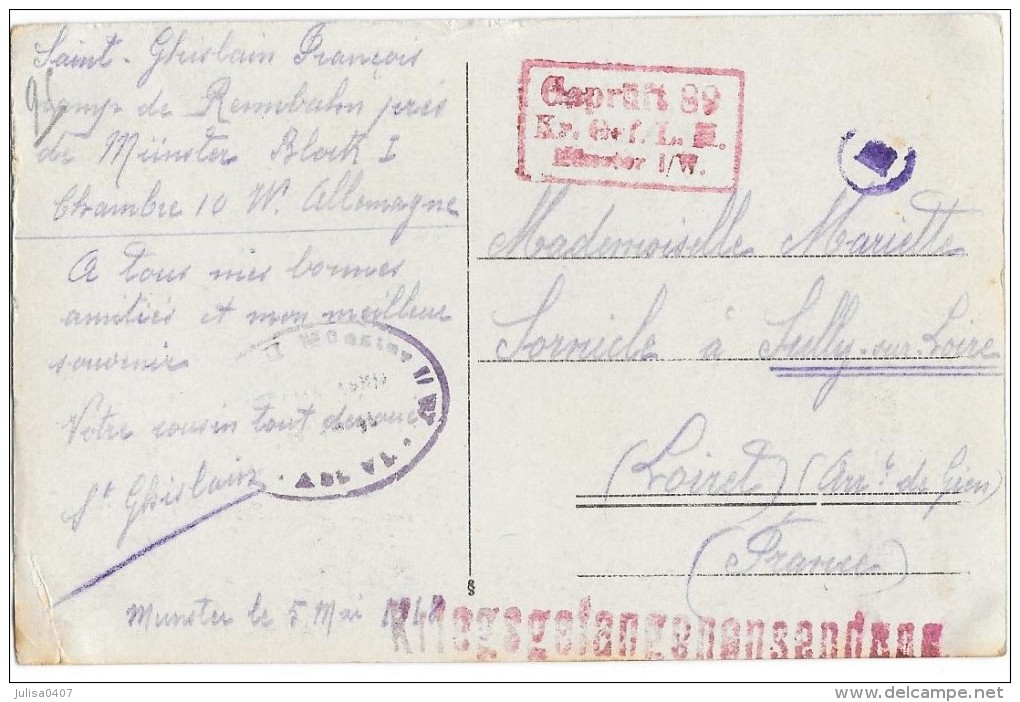 Saint-Ghislain François
camp de Rennbahn près
de Münster Block I
Chambre 10 W. Allemagne
A tous mes bonnes
amitiés et mon meilleur
souvenir
Votre cousin tout dévoué
St Ghislain
Munster le 5 Mai
Geprüft 89
Kr. Gef. L. II.
Münster i/W.
Mademoiselle Mariette
à Sully-sur-Loire
(Loiret) (Arrt de Gien)
(France)
§
Kriegsgefangenensendung
julisa0407
delcampe.net